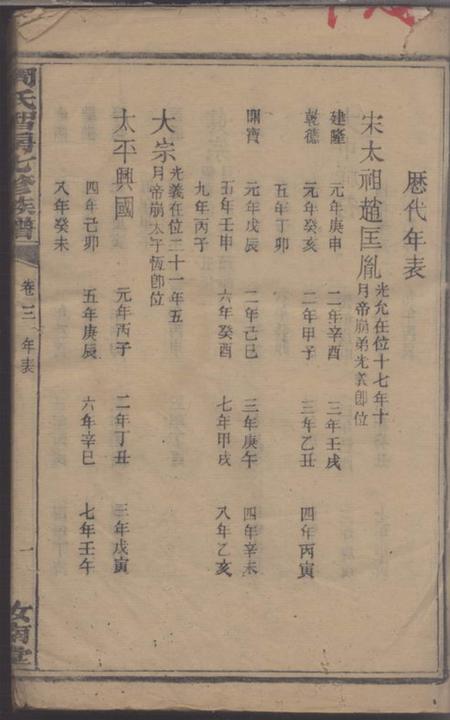 歷代年表
宋太祖趙匡胤 光允在位十七年十
月帝崩弟光義卽位
建隆 元年庚申 二年辛酉 三年壬戌
乾德 元年癸亥 二年甲子 三年乙丑 四年丙寅
五年丁卯
開寶 元年戊辰 二年己巳 三年庚午 四年辛未
五年壬申 六年癸酉 七年甲戌 八年乙亥
九年丙子
大宗 光義在位二十一年五
月帝崩太子恆卽位
太平興國 元年丙子 二年丁丑 三年戊寅
四年己卯 五年庚辰 六年辛巳 七年壬午
八年癸未
周氏智房七修族譜 卷三 年表 一 汝南堂